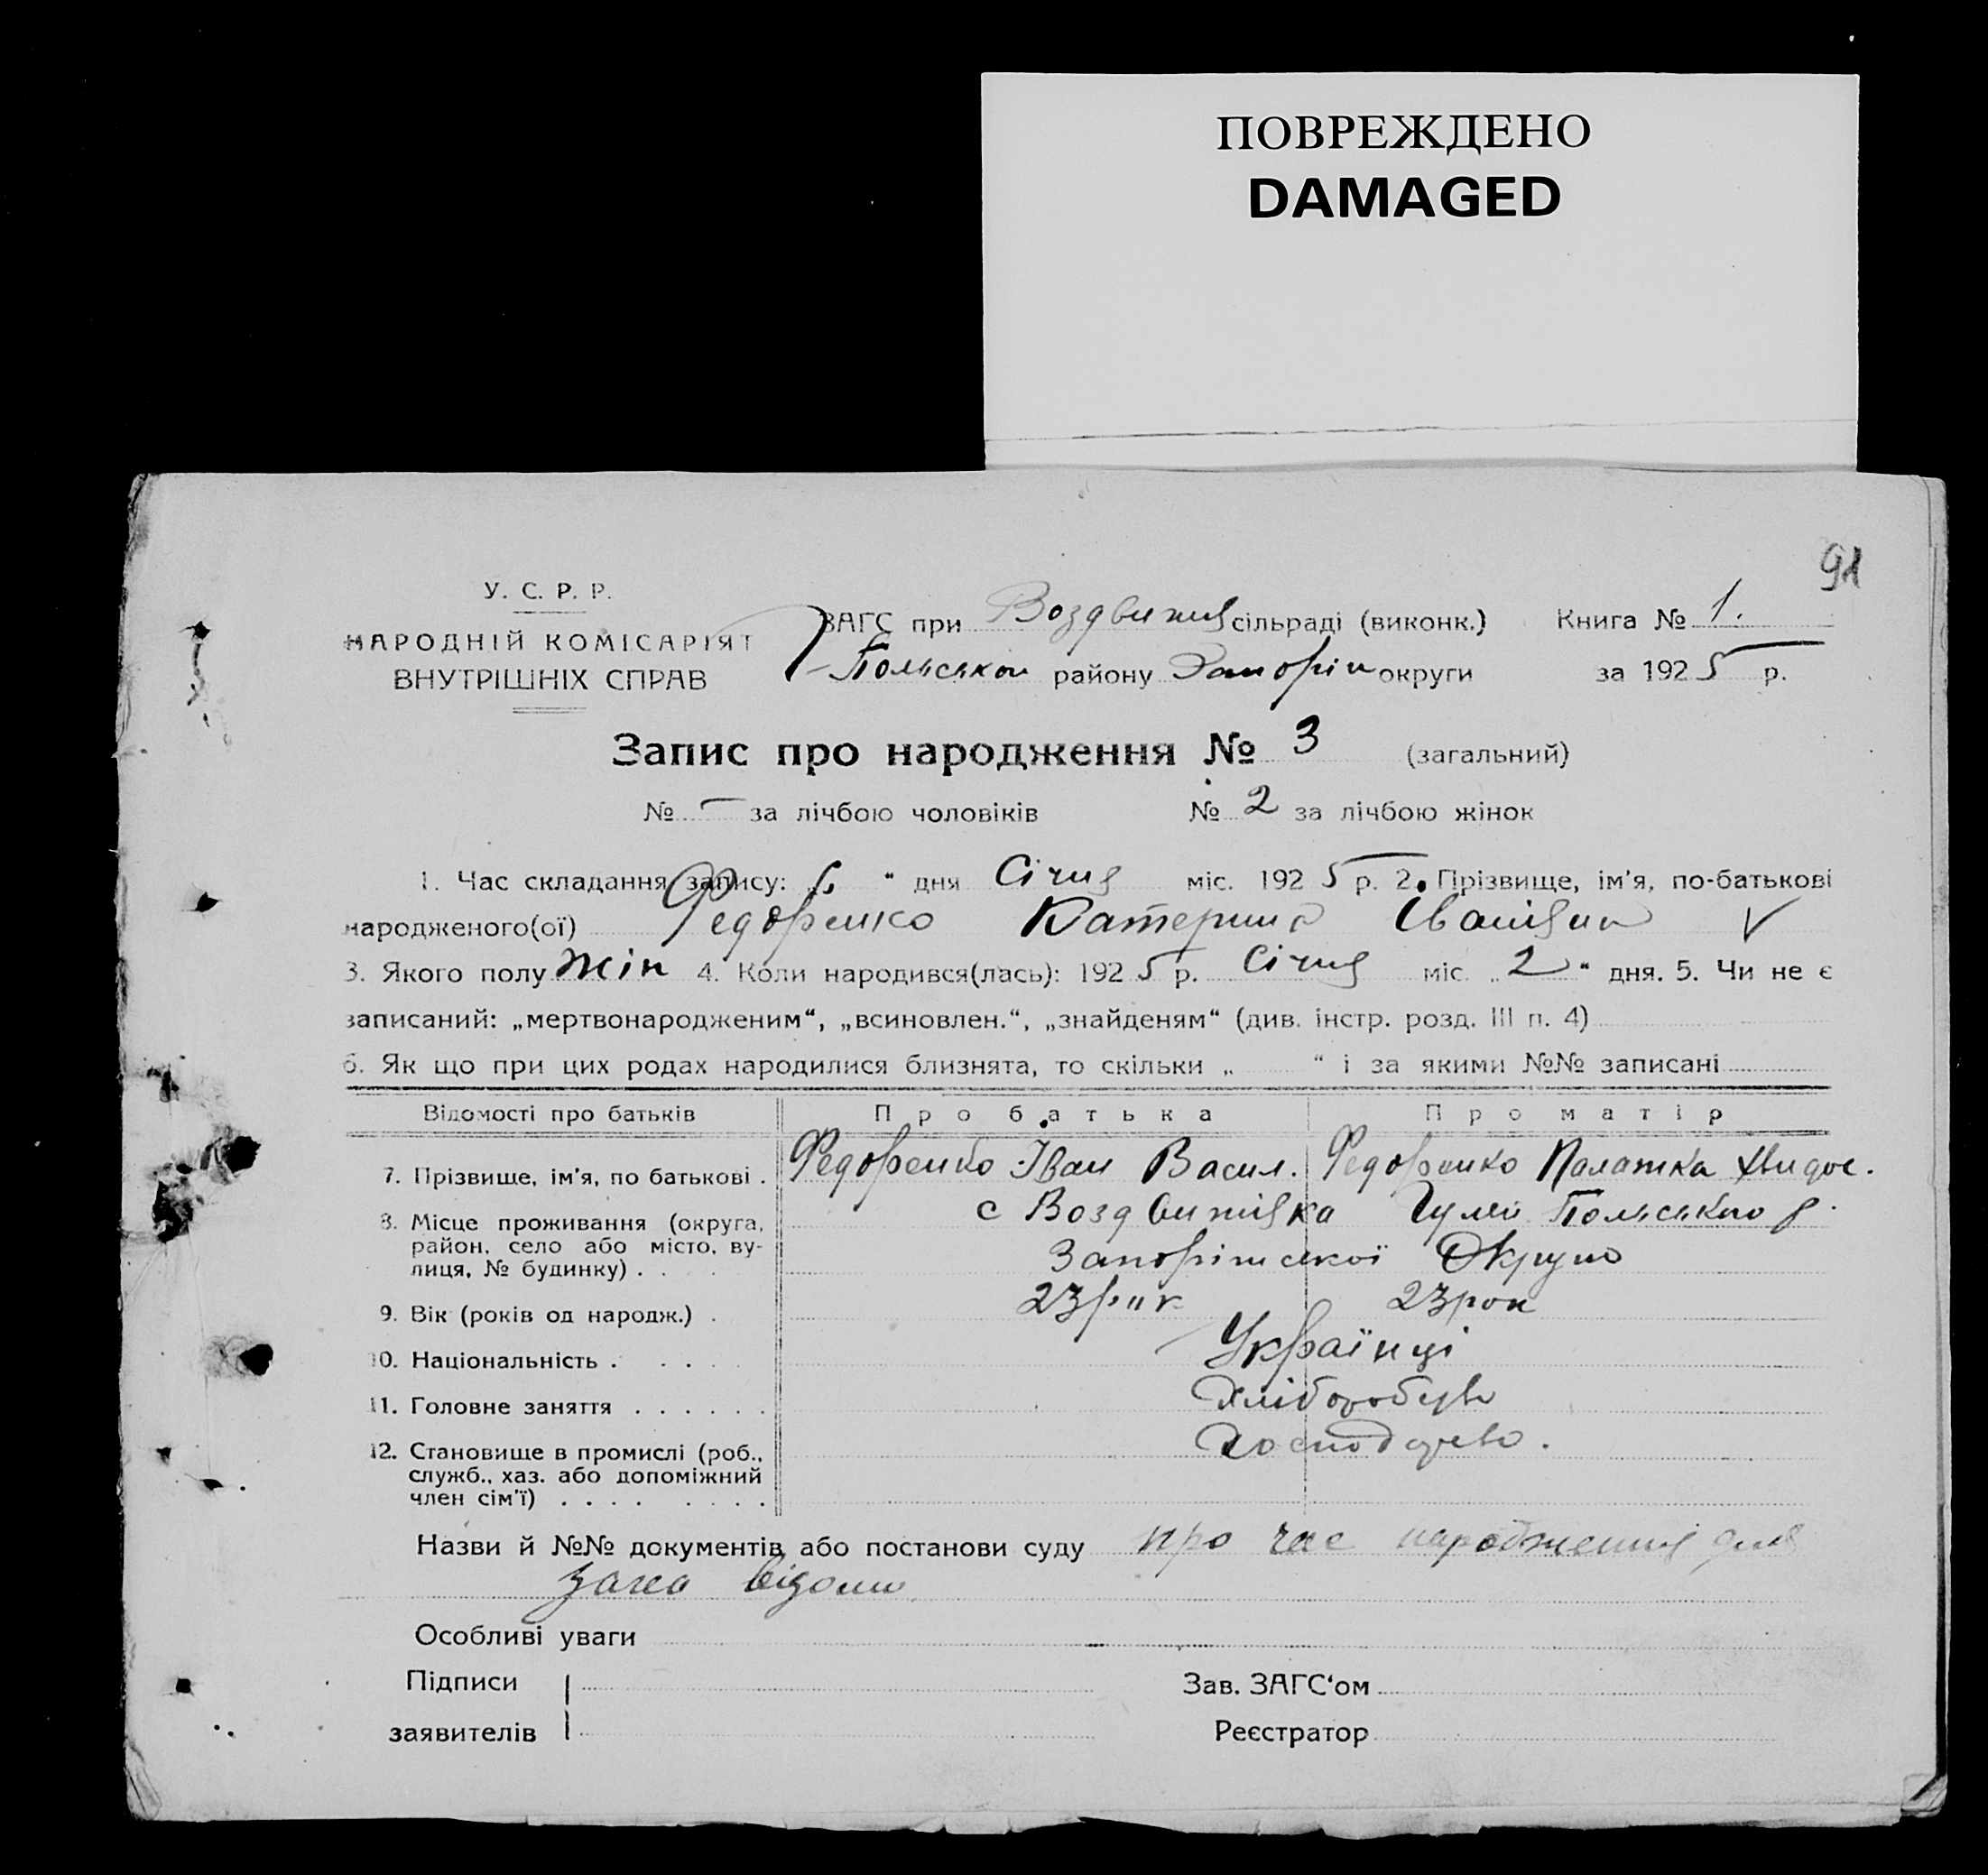 ПОВРЕЖДЕНО
DAMAGED
91
У. С. Р. Р.
НАРОДНІЙ КОМІСАРІЯТ
ВНУТРІШНІХ СПРАВ
ЗАГС при Воздвижів сільраді (виконк.) Книга № 1.
Польськом району Запоріж округи за 1925 р.
Запис про народження № 3 (загальний)
№ – за лічбою чоловіків № 2 за лічбою жінок
1. Час складання запису: „6“ дня Січня міс. 1925 р. 2. Прізвище, ім'я, по-батькові
народженого(ої) Федоренко Катерина Іванівна V
3. Якого полу Жін 4. Коли народився(лась): 1925 р. Січня міс. „2“ дня. 5. Чи не є
записаний: „мертвонародженим“, „всиновлен.“, „знайденям“ (див. інстр. розд. III п. 4)
6. Як що при цих родах народилися близнята, то скільки „ “ і за якими №№ записані
Відомості про батьків Про батька Про матір
7. Прізвище, ім'я, по батькові . Федоренко Іван Васил. Федоренко Палажка Хведос.
8. Місце проживання (округа, с Воздвижівка Гуляй Польського р.
район, село або місто, ву-
лиця, № будинку) . . Запоріжської Округи
9. Вік (років од народж.) . 23 рок 23 рок
10. Національність . . . . . Українці
11. Головне заняття . . . . . . Хліборобств
12. Становище в промислі (роб., Хосподарство.
служб., хаз. або допоміжний
член сім'ї) . . . . . . . .
Назви й №№ документів або постанови суду про час народження для
загса відомо
Особливі уваги
Підписи Зав. ЗАГС'ом
заявителів Реєстратор